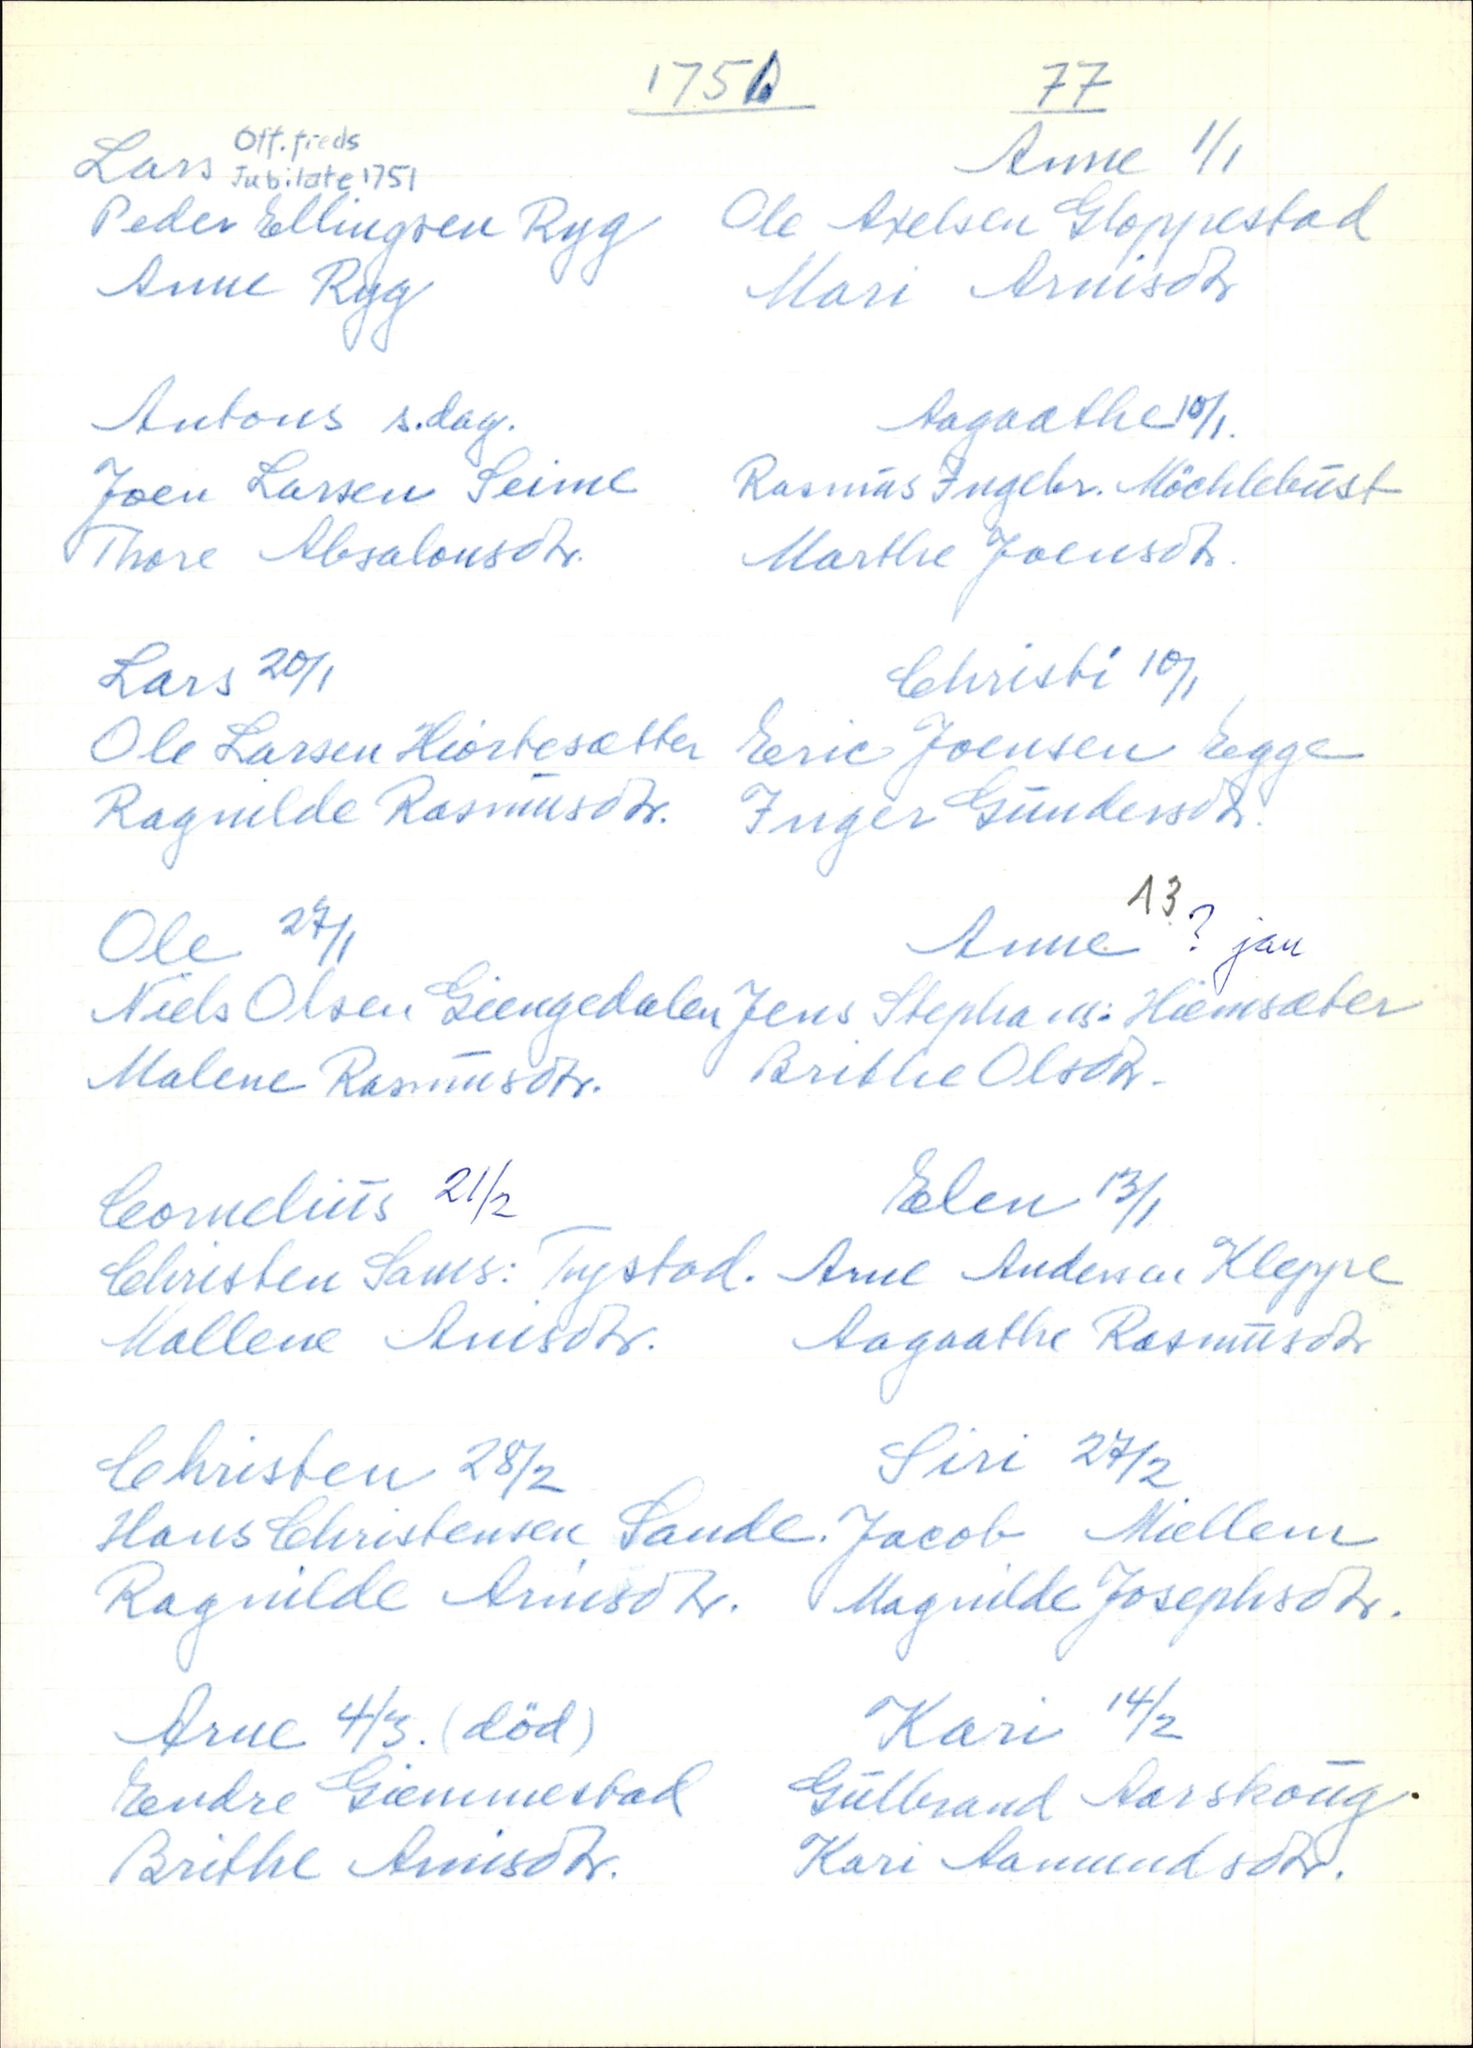 77
Lars Off. fieds
Jubilate 1751
Peder Ellingsen Ryg
Anne Ryg
Antons s.dag.
Joen Larsen Seime
Thore Absalonsdtr.
Lars 20/1
Ole Larsen Hiortesætter
Ragnilde Rasmūsdtr.
Ole 27/1
Niels Olsen Giengedalen
Malene Rasmūsdtr.
Corneliūs 21/2
Christen Sams: Tystad.
Mallene Anisdtr.
Christen 28/2
Hans Christensen Sande.
Ragnilde Arnisdtr.
Arne 4/3. (död)
Endre Giemmestad
Brithe Arnisdtr.
Anne 1/1
Ole Axelsen Gloppestad
Mari Arnisdtr
Aagaathe 10/1.
Rasmūs Ingebr. Möchlebūst
Marthe Joensdtr.
Christi 10/1
Eric Joensen Egge
Inger Gūndersdtr.
Anne 13 ? jan
Jens Stephans: Hiemsæter
Brithe Olsdtr.
Elen 13/1
Arne Andersen Kleppe
Aagaathe Rasmūsdtr
Siri 27/2
Jacob Miellem
Magnilde Josephsdtr.
Kari 14/2
Gūlbrand Aarskoūg.
Kari Aamundsdtr.